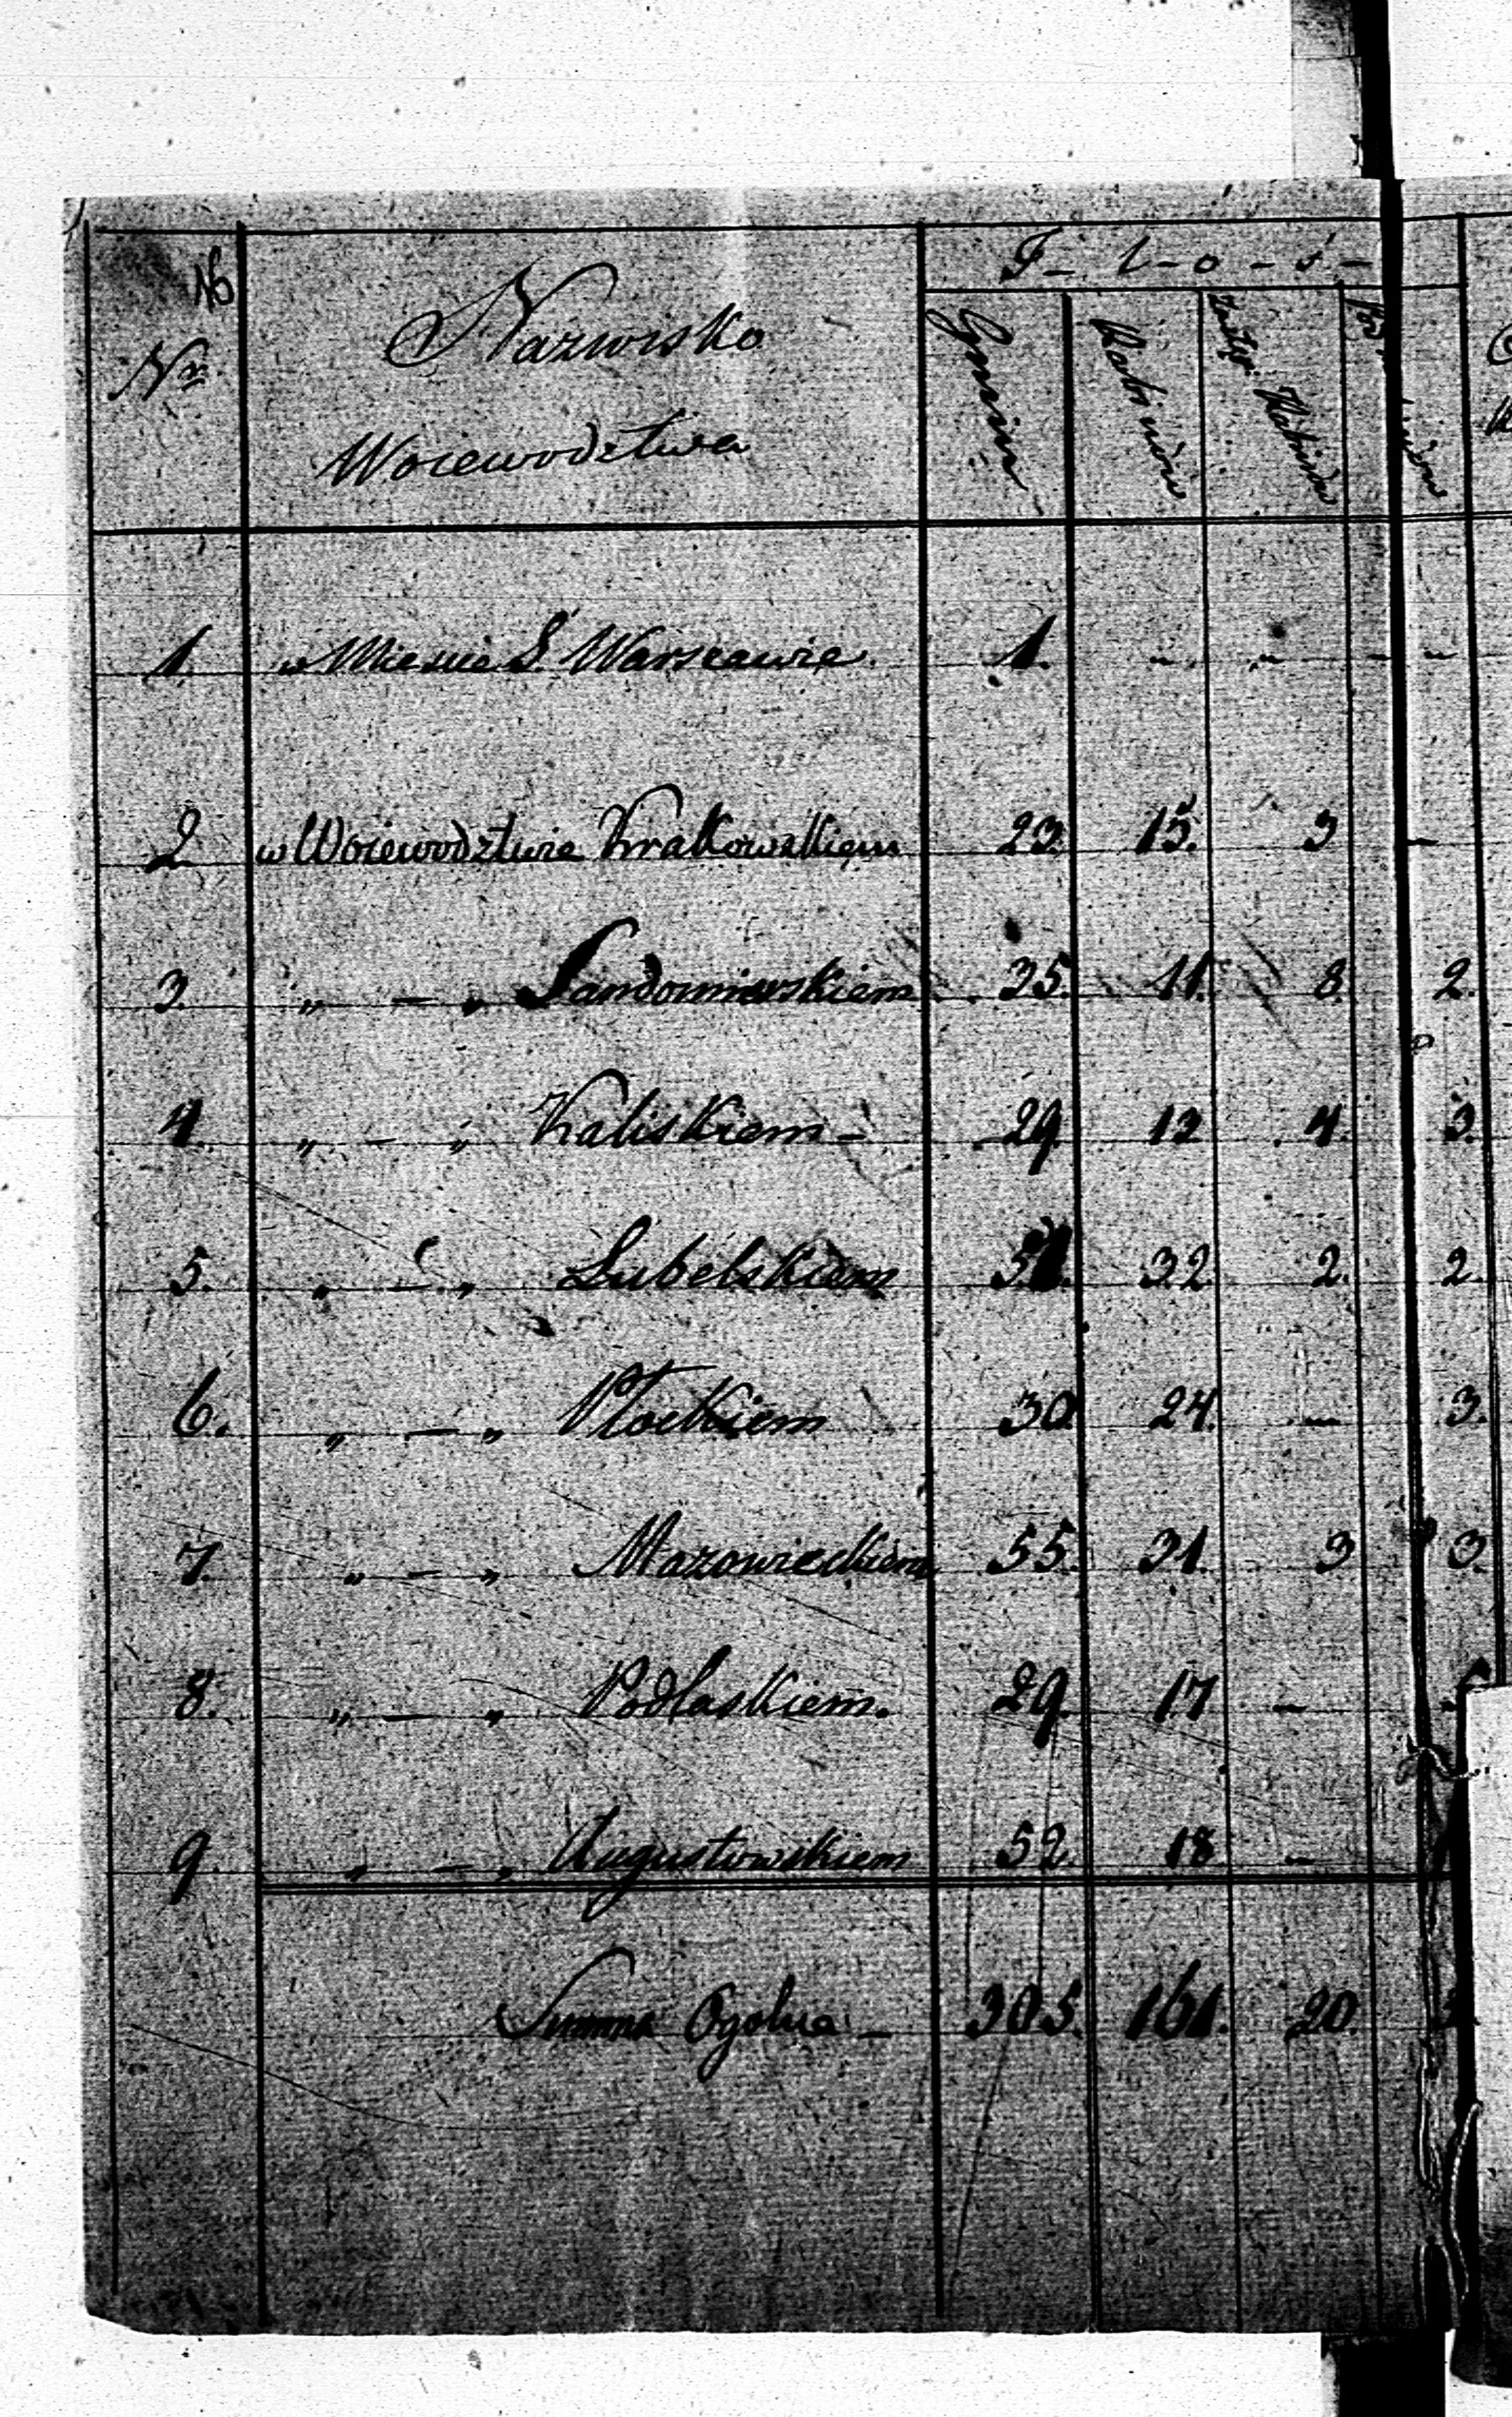 I - l - o - ś -
Nr. Nazwisko
Woiewodztwa
Gmin Rabinów Zastęp. Rabinów
1. w Mieście S. Warszawie. 1. - - -
2 w Woiewodztwie Krakowskiem 23. 15. 3 -
3 „ - „ Sandomierskiem 35. 11. 8. 2.
4. „ - „ Kaliskiem - 29. 13 4. 3.
5. „ - „ Lubelskiem 32. 2. 2.
6. „ - „ Płockiem 30 24. - 3.
7. „ - „ Mazowieckiem 55. 31. 3 3.
8. „ - „ Podlaskiem. 29. 17 -
9. „ - „ Augustowskiem 52. 18 -
Summa Ogolna - 305. 161. 20.